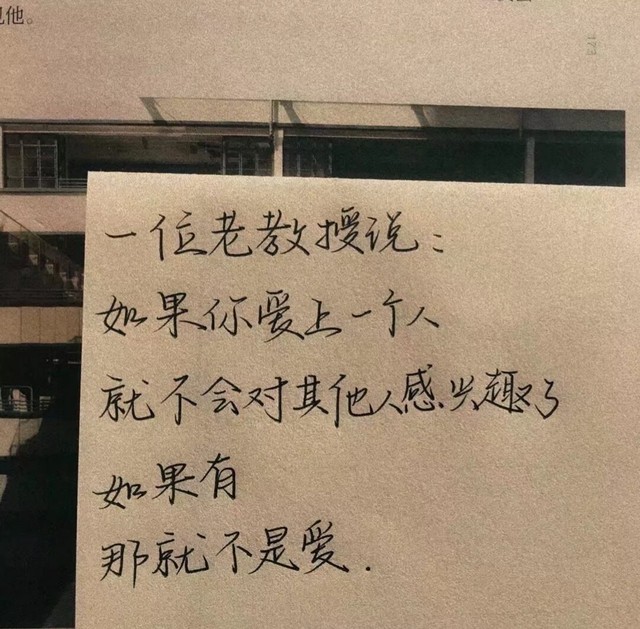 他。
173
一位老教授说：
如果你爱上一个人
就不会对其他人感兴趣了
如果有
那就不是爱.